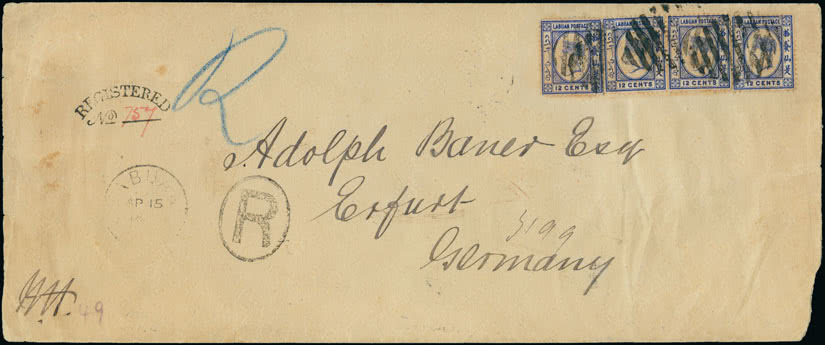 LABUAN POSTAGE LABUAN POSTAGE LABUAN POSTAGE LABUAN POSTAGE
12 CENTS 12 CENTS 12 CENTS 12 CENTS
R
REGISTERED
No 757
Adolph Bauer Esq
LABUAN
AP 15
R
Erfurt
3199
Germany
49